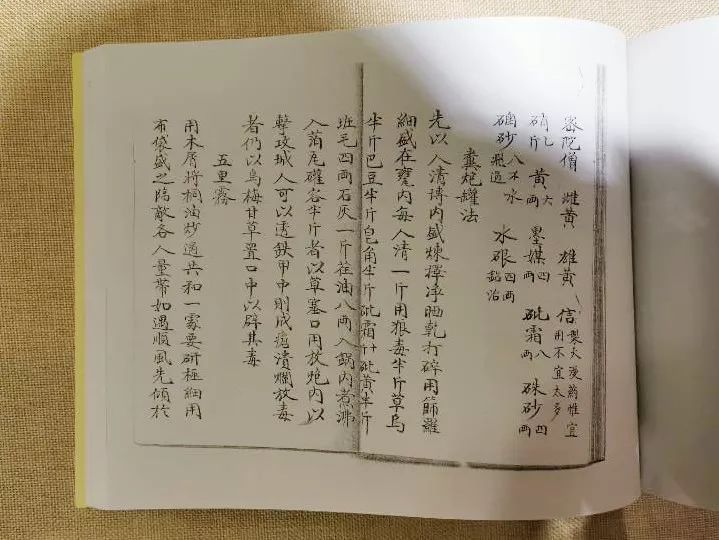 密陀僧 雌黃 雄黃 信 製火漫藥惟宜用不宜太多
硝斤 黃兩 墨媒四兩 砒霜八兩 硃砂四兩
硇砂 水銀四兩鉛治
糞炮罐法
先以人清磚內盛煉擇净晒乾打碎用篩羅
細盛在甕內每人清一斤用狼毒半斤草烏
半斤巴豆半斤皂角半斤砒霜砒黃半斤
班毛四兩石灰一斤荏油八兩入鍋內煮沸
入薄瓦罐容半斤者以草塞口用放炮內以
擊攻城人可以透鉄甲中則成瘡潰爛放毒
者仍以烏梅甘草置口中以辟其毒
五里霧
用木屑將桐油炒過共和一處要研極細用
布袋盛之臨敵各人量帶如遇順風先傾於